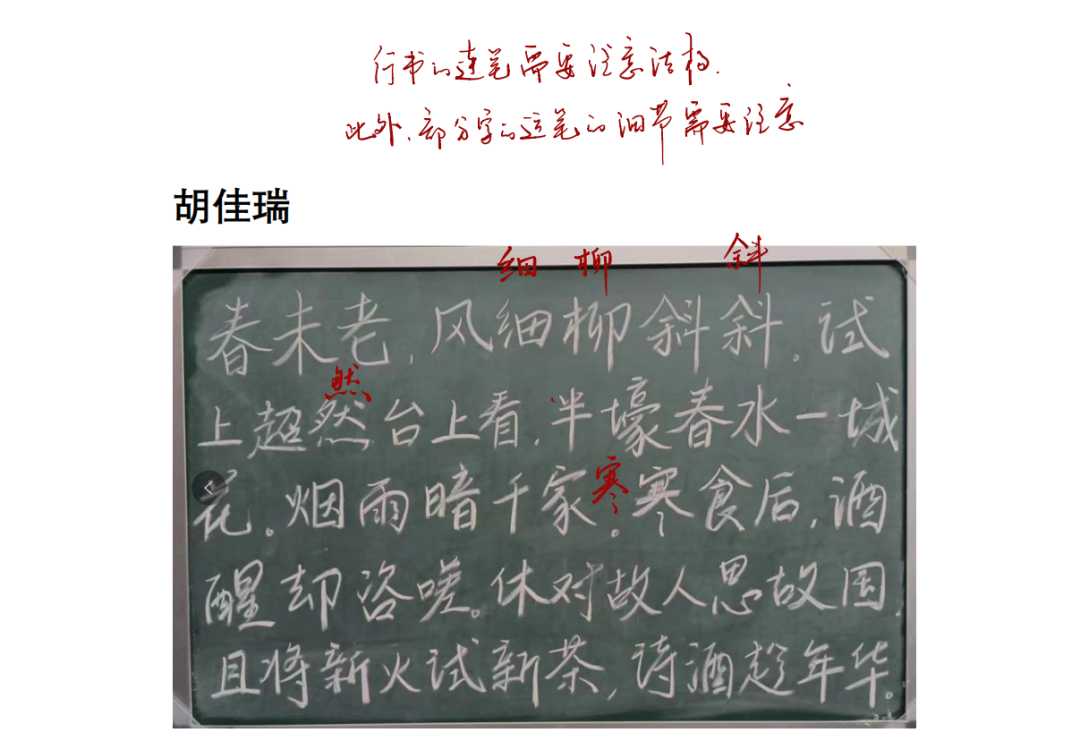 行书的连笔需要注意结构.
此外、部分字的运笔的细节需要注意
胡佳瑞
细 柳 斜
春未老,风细柳斜斜.试
然
上超然台上看.半壕春水一城
寒
花。烟雨暗千家。寒食后,酒
醒却咨嗟。休对故人思故国.
且将新火试新茶,诗酒趁年华。